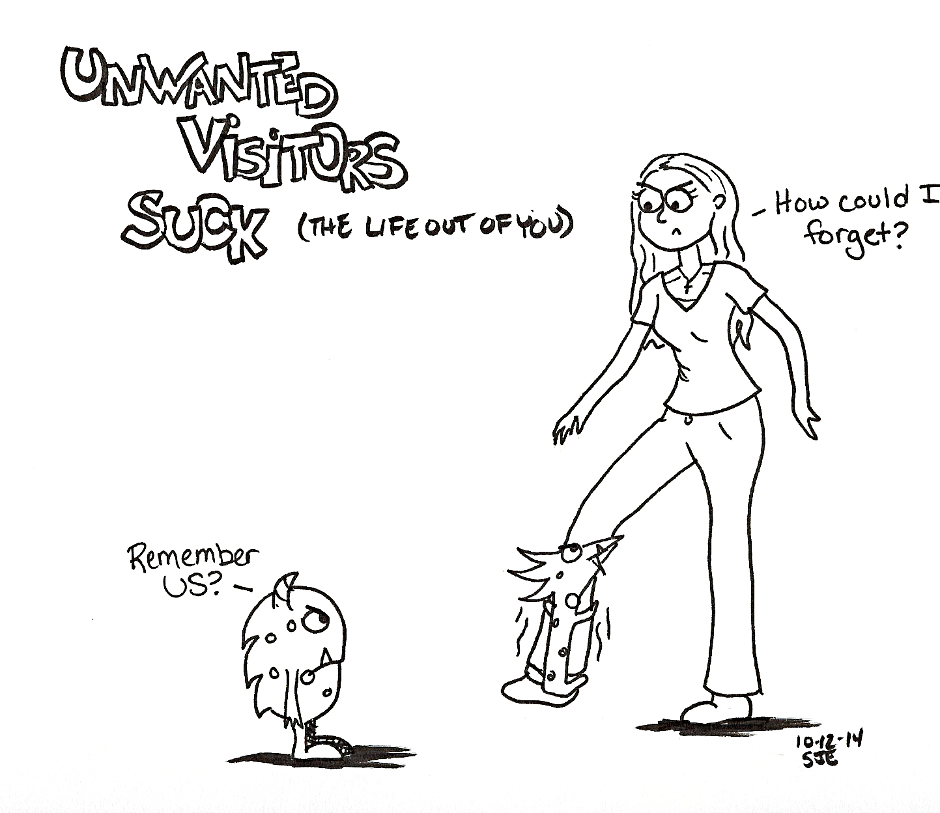 UNWANTED
VISITORS
SUCK (THE LIFE OUT OF YOU)
How could I
forget?
Remember
US?
10-12-14
SJE